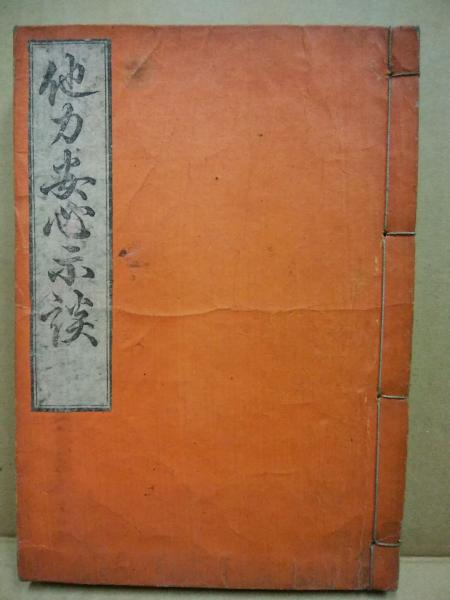 他力安心示談